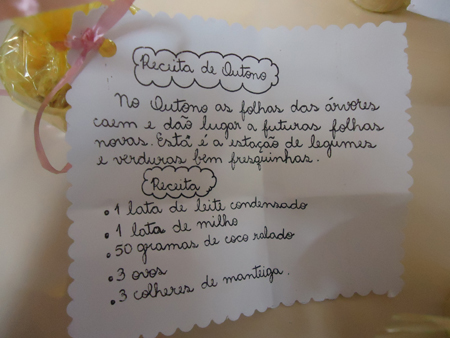 Receita de Outono
No Outono as folhas das árvores
caem e dão lugar a futuras folhas
novas. Está é a estação de legumes
e verduras bem fresquinhas.
Receita
• 1 lata de leite condensado
• 1 lata de milho
• 50 gramas de coco ralado
• 3 ovos
• 3 colheres de manteiga.